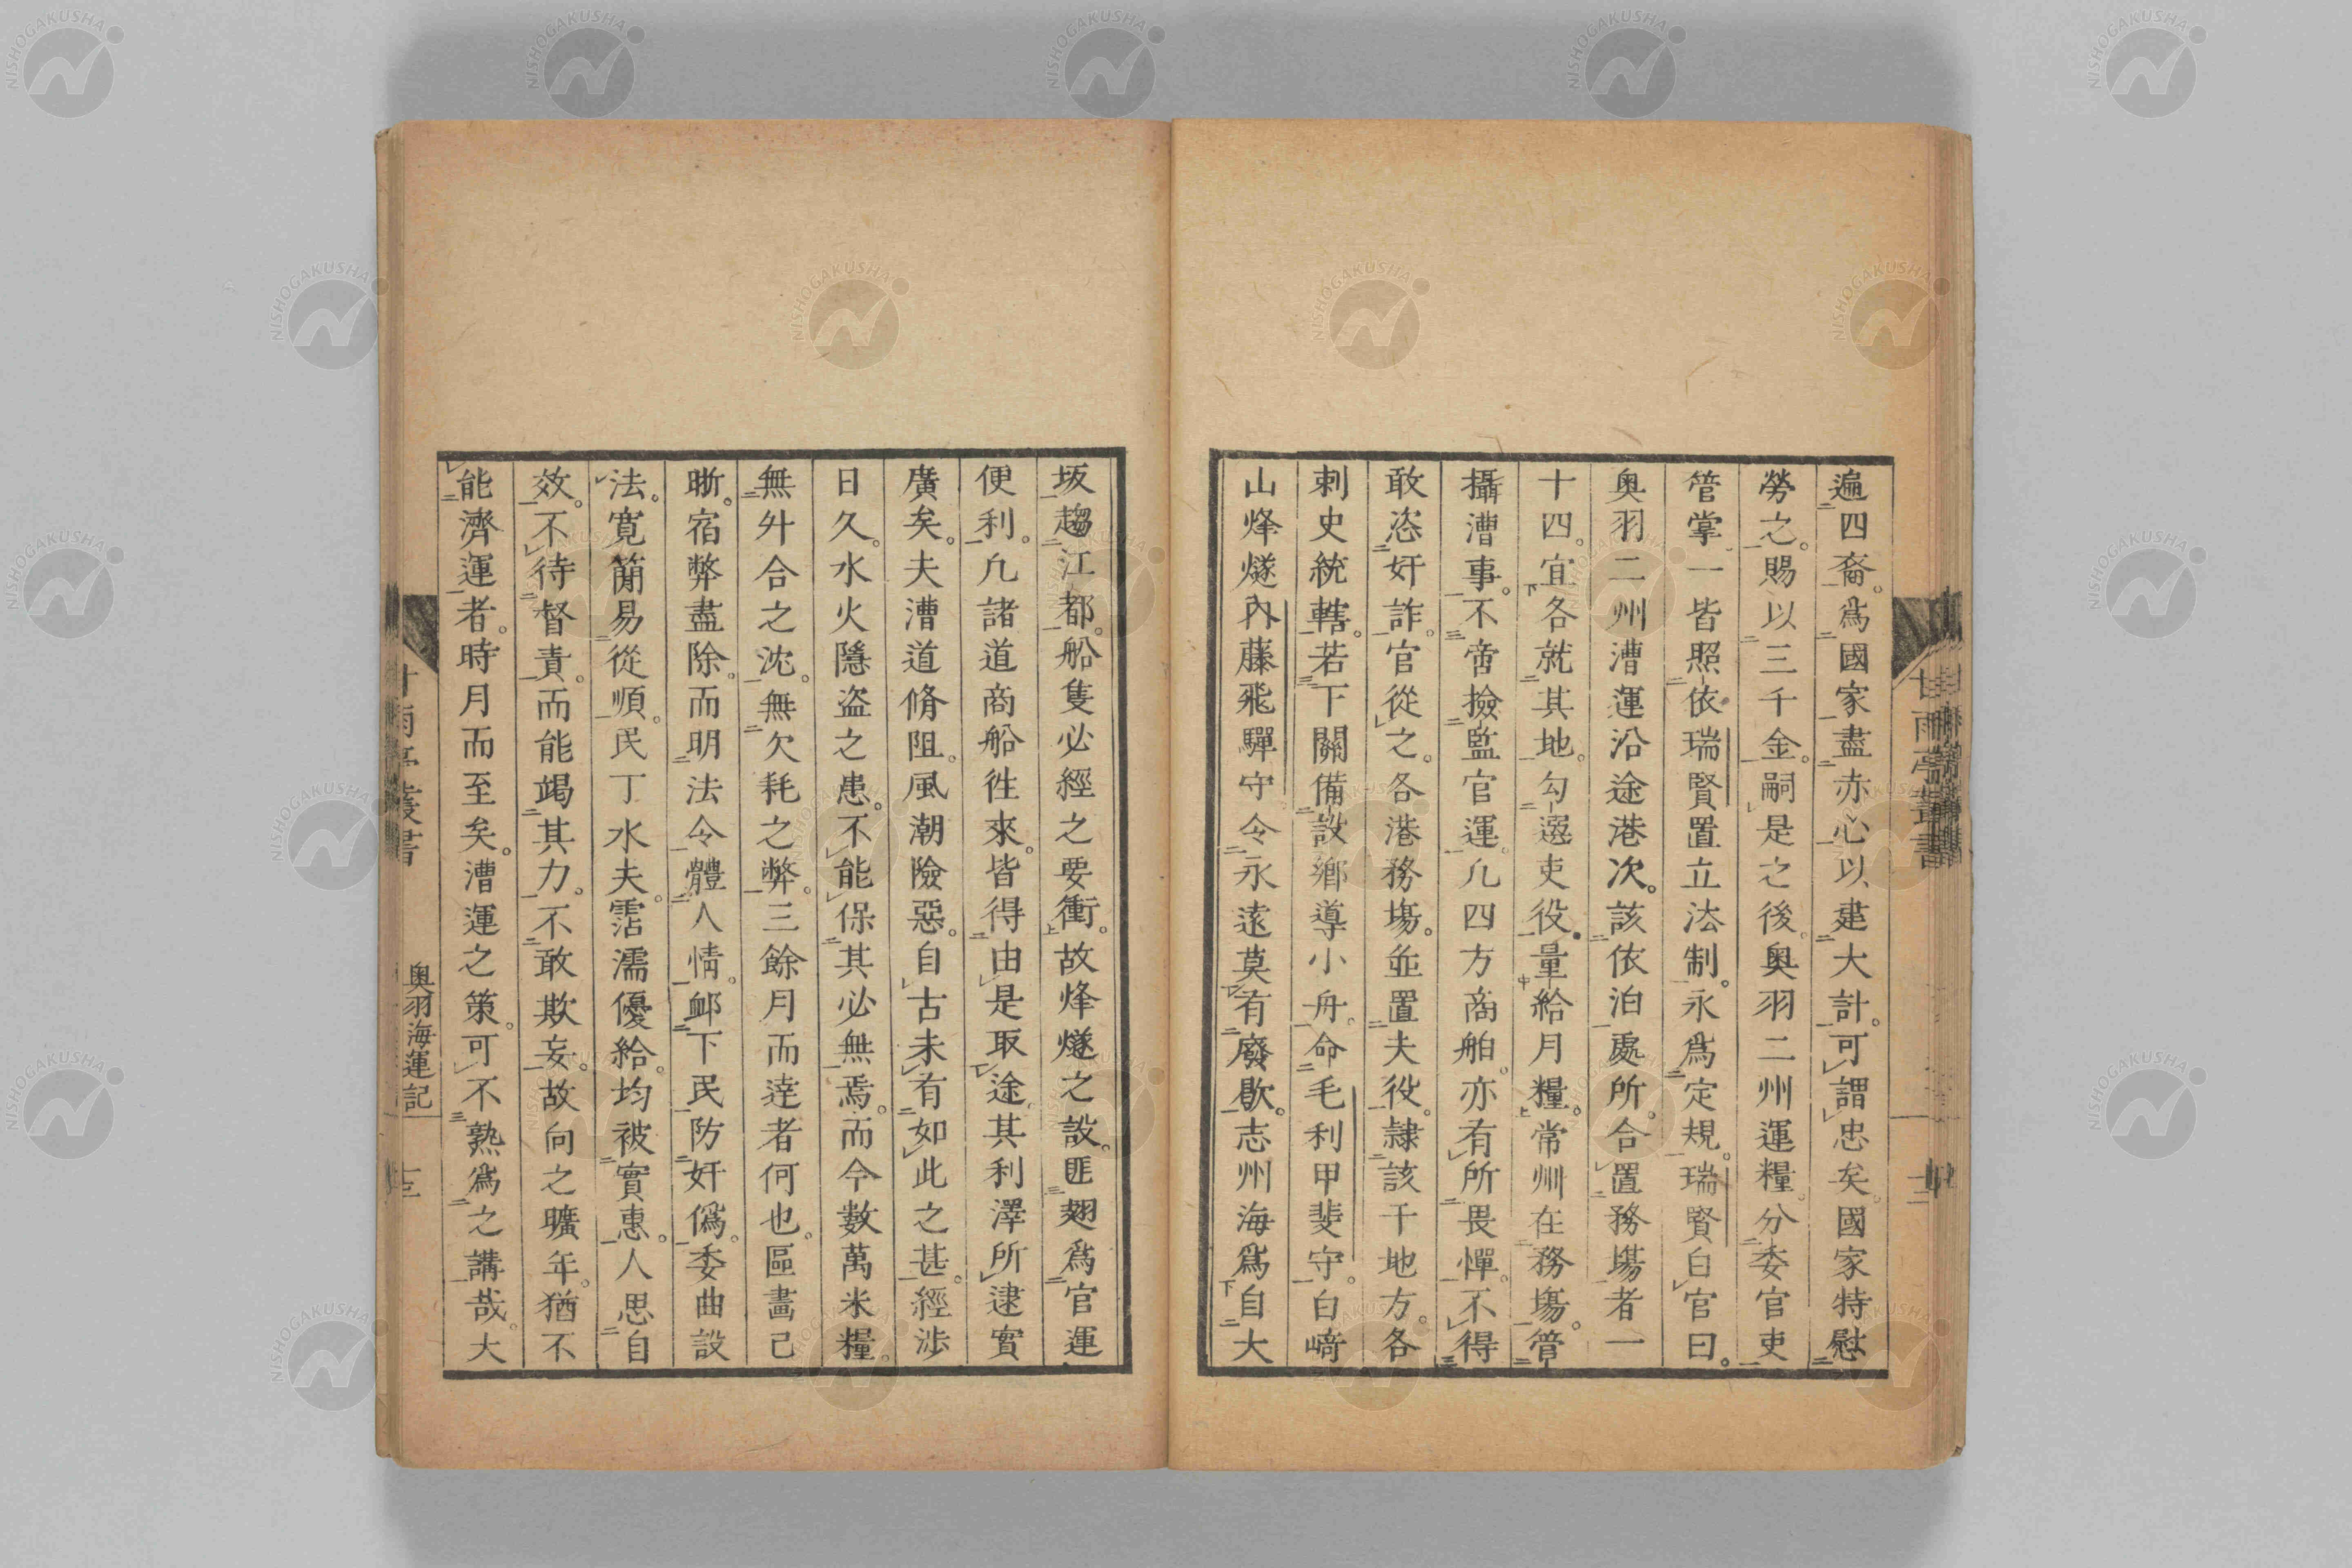 遍四裔。爲國家盡赤心以建大計。可謂忠矣。國家特慰
勞之。賜以三千金。嗣是之後。奥羽二州運糧。分委官吏
管掌一皆照依瑞賢置立法制。永爲定規。瑞賢白官曰。
奥羽二州漕運沿途港次。該依泊處所。合置務場者一
十四。宜各就其地。勾選吏役。量給月糧。常州在務場。管
攝漕事。不啻撿監官運。凢四方商舶。亦有所畏憚。不得
敢恣奸詐。官從之。各港務場。並置夫役。隷該干地方。各
刺史統轄。若下關備設鄕導小舟。命毛利甲斐守。白﨑
山烽燧內藤飛驒守令永遠莫有廢歇。志州海爲自大
坂趨江都。船隻必經之要衝。故烽燧之設。匪翅爲官運
便利。凢諸道商船徃來。皆得由是取途。其利澤所逮實
廣矣。夫漕道脩阻。風潮險惡。自古未有如此之甚。經涉
日久。水火隱盗之患。不能保其必無焉。而今數萬米糧。
無舛合之沈。無欠耗之弊。三餘月而達者何也。區畵己
晣。宿弊盡除。而明法令。體人情。邮下民防奸僞。委曲設
法。寛簡易從順。民丁水夫。霑濡優給。均被實惠。人思自
效。不待督責。而能竭其力。不敢欺妄。故向之曠年。猶不
能濟運者。時月而至矣。漕運之策。可不熟爲之講哉。大
甘雨亭叢書
奥羽海運記
十三